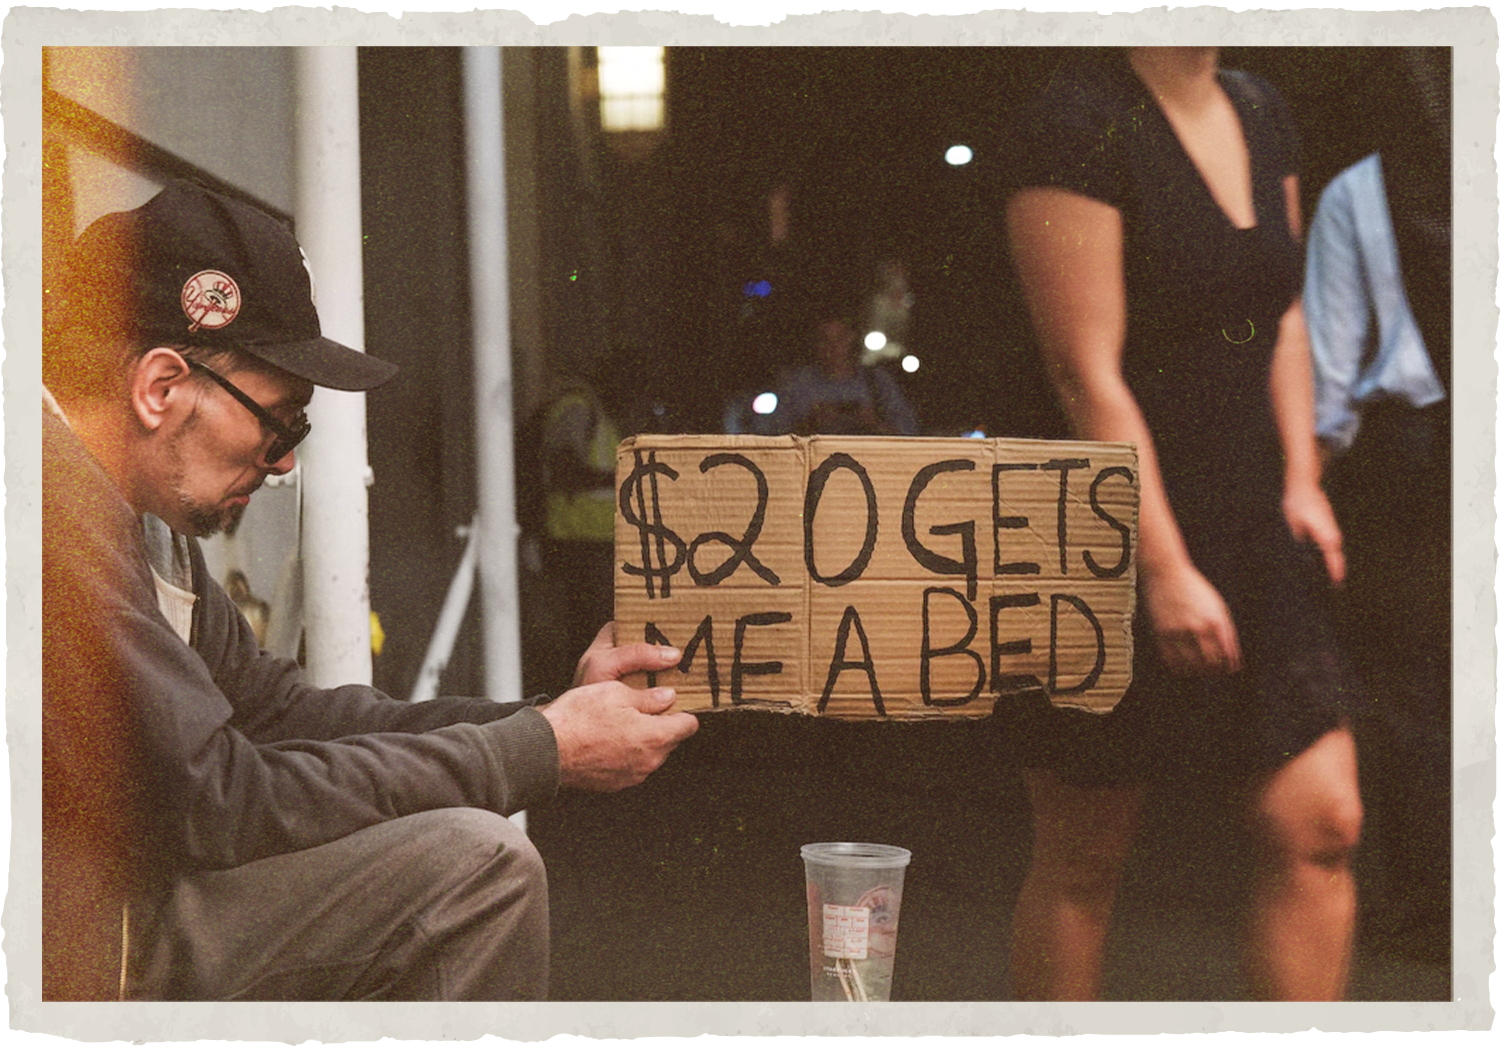 $20 GETS
ME A BED